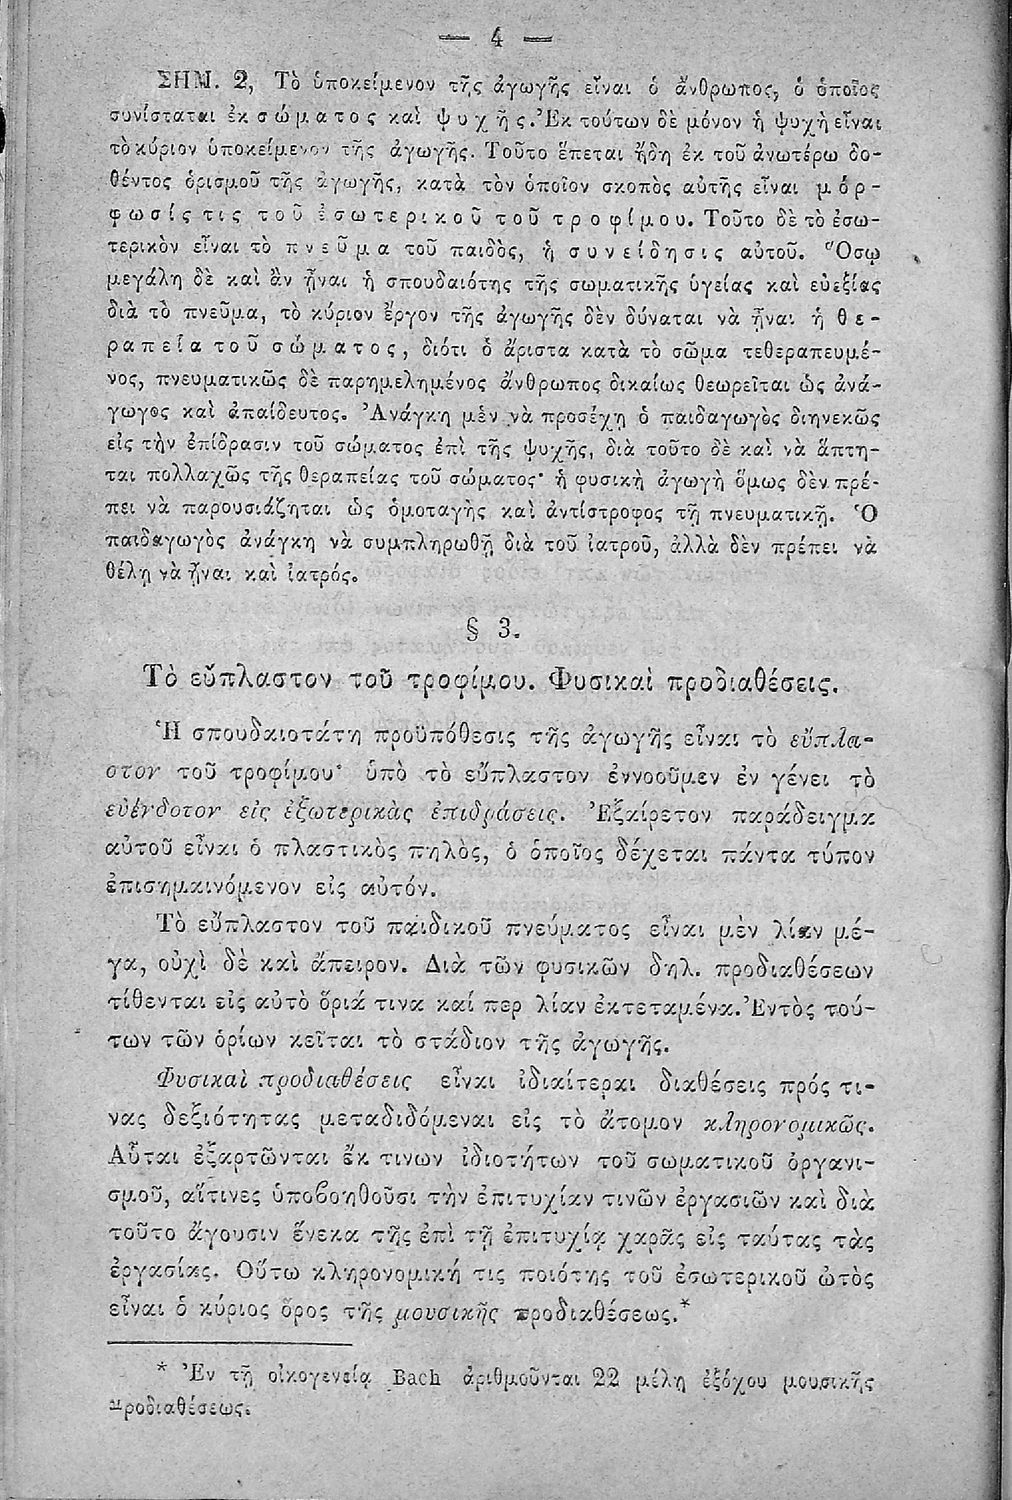 — 4 —
ΣΗΜ. 2, Τὸ ὑποκείμενον τῆς ἀγωγῆς εἶναι ὁ ἄνθρωπος, ὁ ὁποῖος
συνίσταται ἐκ σώματος καὶ ψυχῆς. Ἐκ τούτων δὲ μόνον ἡ ψυχὴ εἶναι
τὸ κύριον ὑποκείμενον τῆς ἀγωγῆς. Τοῦτο ἕπεται ἤδη ἐκ τοῦ ἀνωτέρω δο-
θέντος ὁρισμοῦ τῆς ἀγωγῆς, κατὰ τὸν ὁποῖον σκοπὸς αὐτῆς εἶναι μόρ-
φωσίς τις τοῦ ἐσωτερικοῦ τοῦ τροφίμου. Τοῦτο δὲ τὸ ἐσω-
τερικὸν εἶναι τὸ πνεῦμα τοῦ παιδὸς, ἡ συνείδησις αὐτοῦ. Ὅσῳ
μεγάλη δὲ καὶ ἂν ᾖναι ἡ σπουδαιότης τῆς σωματικῆς ὑγείας καὶ εὐεξίας
διὰ τὸ πνεῦμα, τὸ κύριον ἔργον τῆς ἀγωγῆς δὲν δύναται νὰ ᾖναι ἡ θε-
ραπεία τοῦ σώματος, διότι ὁ ἄριστα κατὰ τὸ σῶμα τεθεραπευμέ-
νος, πνευματικῶς δὲ παρημελημένος ἄνθρωπος δικαίως θεωρεῖται ὡς ἀνά-
γωγος καὶ ἀπαίδευτος. Ἀνάγκη μὲν νὰ προσέχῃ ὁ παιδαγωγὸς διηνεκῶς
εἰς τὴν ἐπίδρασιν τοῦ σώματος ἐπὶ τῆς ψυχῆς, διὰ τοῦτο δὲ καὶ νὰ ἅπτη-
ται πολλαχῶς τῆς θεραπείας τοῦ σώματος· ἡ φυσικὴ ἀγωγὴ ὅμως δὲν πρέ-
πει νὰ παρουσιάζηται ὡς ὁμοταγὴς καὶ ἀντίστροφος τῇ πνευματικῇ. Ὁ
παιδαγωγὸς ἀνάγκη νὰ συμπληρωθῇ διὰ τοῦ ἰατροῦ, ἀλλὰ δὲν πρέπει νὰ
θέλῃ νὰ ᾖναι καὶ ἰατρός.
§ 3.
Τὸ εὔπλαστον τοῦ τροφίμου. Φυσικαὶ προδιαθέσεις.
Ἡ σπουδαιοτάτη προϋπόθεσις τῆς ἀγωγῆς εἶναι τὸ εὔπλα-
στον τοῦ τροφίμου· ὑπὸ τὸ εὔπλαστον ἐννοοῦμεν ἐν γένει τὸ
εὐένδοτον εἰς ἐξωτερικὰς ἐπιδράσεις. Ἐξαίρετον παράδειγμα
αὐτοῦ εἶναι ὁ πλαστικὸς πηλὸς, ὁ ὁποῖος δέχεται πάντα τύπον
ἐπισημαινόμενον εἰς αὐτόν.
Τὸ εὔπλαστον τοῦ παιδικοῦ πνεύματος εἶναι μὲν λίαν μέ-
γα, οὐχὶ δὲ καὶ ἄπειρον. Διὰ τῶν φυσικῶν δηλ. προδιαθέσεων
τίθενται εἰς αὐτὸ ὅριά τινα καί περ λίαν ἐκτεταμένα. Ἐντὸς τού-
των τῶν ὁρίων κεῖται τὸ στάδιον τῆς ἀγωγῆς.
Φυσικαὶ προδιαθέσεις εἶναι ἰδιαίτεραι διαθέσεις πρός τι-
νας δεξιότητας μεταδιδόμεναι εἰς τὸ ἄτομον κληρονομικῶς.
Αὗται ἐξαρτῶνται ἔκ τινων ἰδιοτήτων τοῦ σωματικοῦ ὀργανι-
σμοῦ, αἵτινες ὑποβοηθοῦσι τὴν ἐπιτυχίαν τινῶν ἐργασιῶν καὶ διὰ
τοῦτο ἄγουσιν ἕνεκα τῆς ἐπὶ τῇ ἐπιτυχίᾳ χαρᾶς εἰς ταύτας τὰς
ἐργασίας. Οὕτω κληρονομική τις ποιότης τοῦ ἐσωτερικοῦ ὠτὸς
εἶναι ὁ κύριος ὅρος τῆς μουσικῆς προδιαθέσεως.*
* Ἐν τῇ οἰκογενείᾳ Bach ἀριθμοῦνται 22 μέλη ἐξόχου μουσικῆς
προδιαθέσεως.